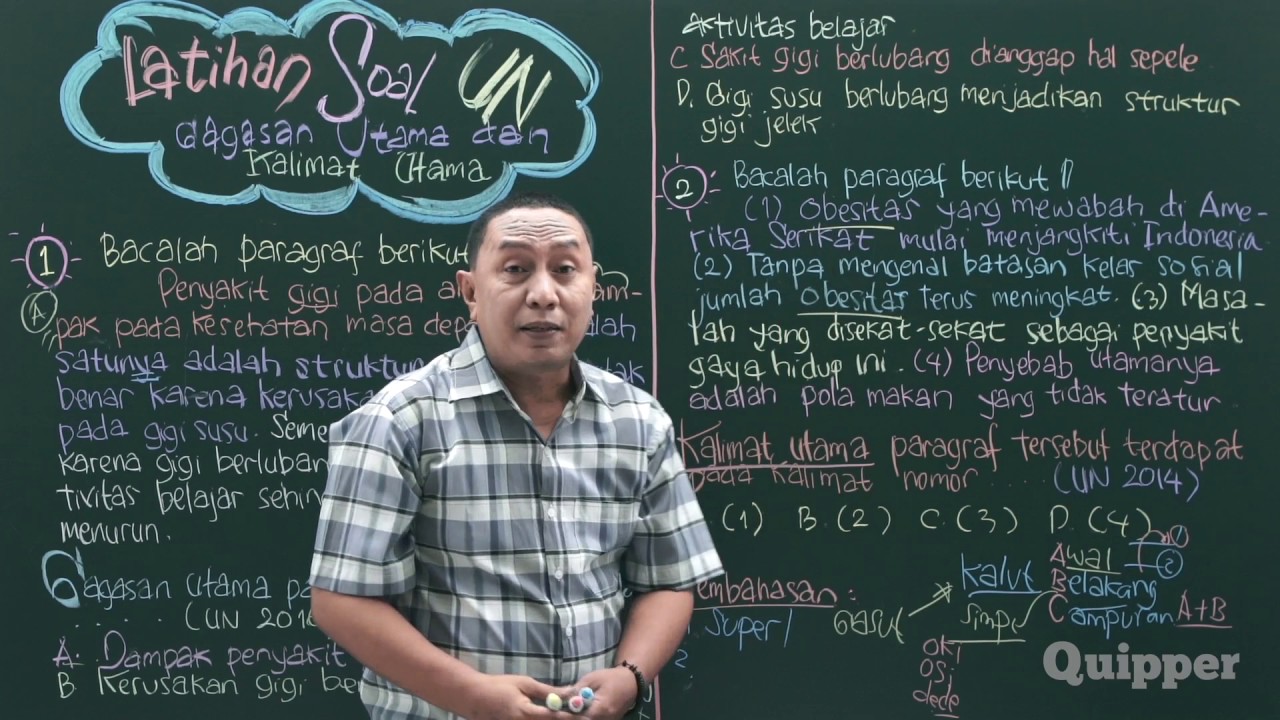 Latihan Soal UN
Gagasan Utama dan
Kalimat Utama
1 Bacalah paragraf berikut
Penyakit gigi pada
A
pak pada kesehatan masa
satunya adalah struktur
benar karena
pada gigi susu.
karena gigi
tivitas belajar
menurun.
Gagasan Utama
..... (UN
A. Dampak penyakit
B. Kerusakan gigi
Aktivitas belajar
C Sakit gigi berlubang dianggap hal sepele
D. Gigi susu berlubang menjadikan struktur
gigi jelek
2 Bacalah paragraf berikut !
(1) Obesitas yang mewabah di Ame-
rika Serikat mulai menjangkiti Indonesia
(2) Tanpa mengenal batasan kelas sosial
jumlah Obesitas terus meningkat. (3) Masa-
lah yang disekat-sekat sebagai penyakit
gaya hidup ini. (4) Penyebab utamanya
adalah pola makan yang tidak teratur
Kalimat utama paragraf tersebut terdapat
pada kalimat nomor ..... (UN 2014)
(1) B. (2) C. (3) D. (4)
Awal 1
2
Kalut Belakang
embahasan :
Super Gasut Simpul Campuran A+B
2
OKI
OSI
dede
Quipper